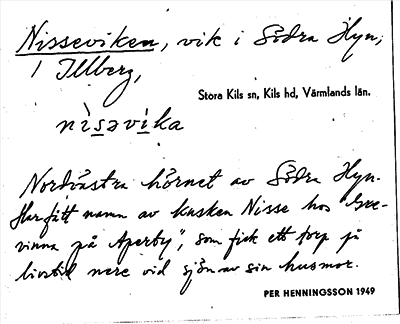 Nisseviken, vik i Södra Hyn,
i Illberg,
Stora Kils sn, Kils hd, Värmlands län.
nìsəvika
Nordvästra hörnet av Södra Hyn.
Har fått namn av kusken Nisse hos "Gre-
vinna på Aperby", som fick ett torp på
livstid nere vid sjön av sin husmor.
PER HENNINGSSON 1949